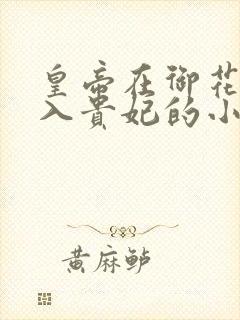 皇帝在御花
入贵妃的小
黄麻鲈